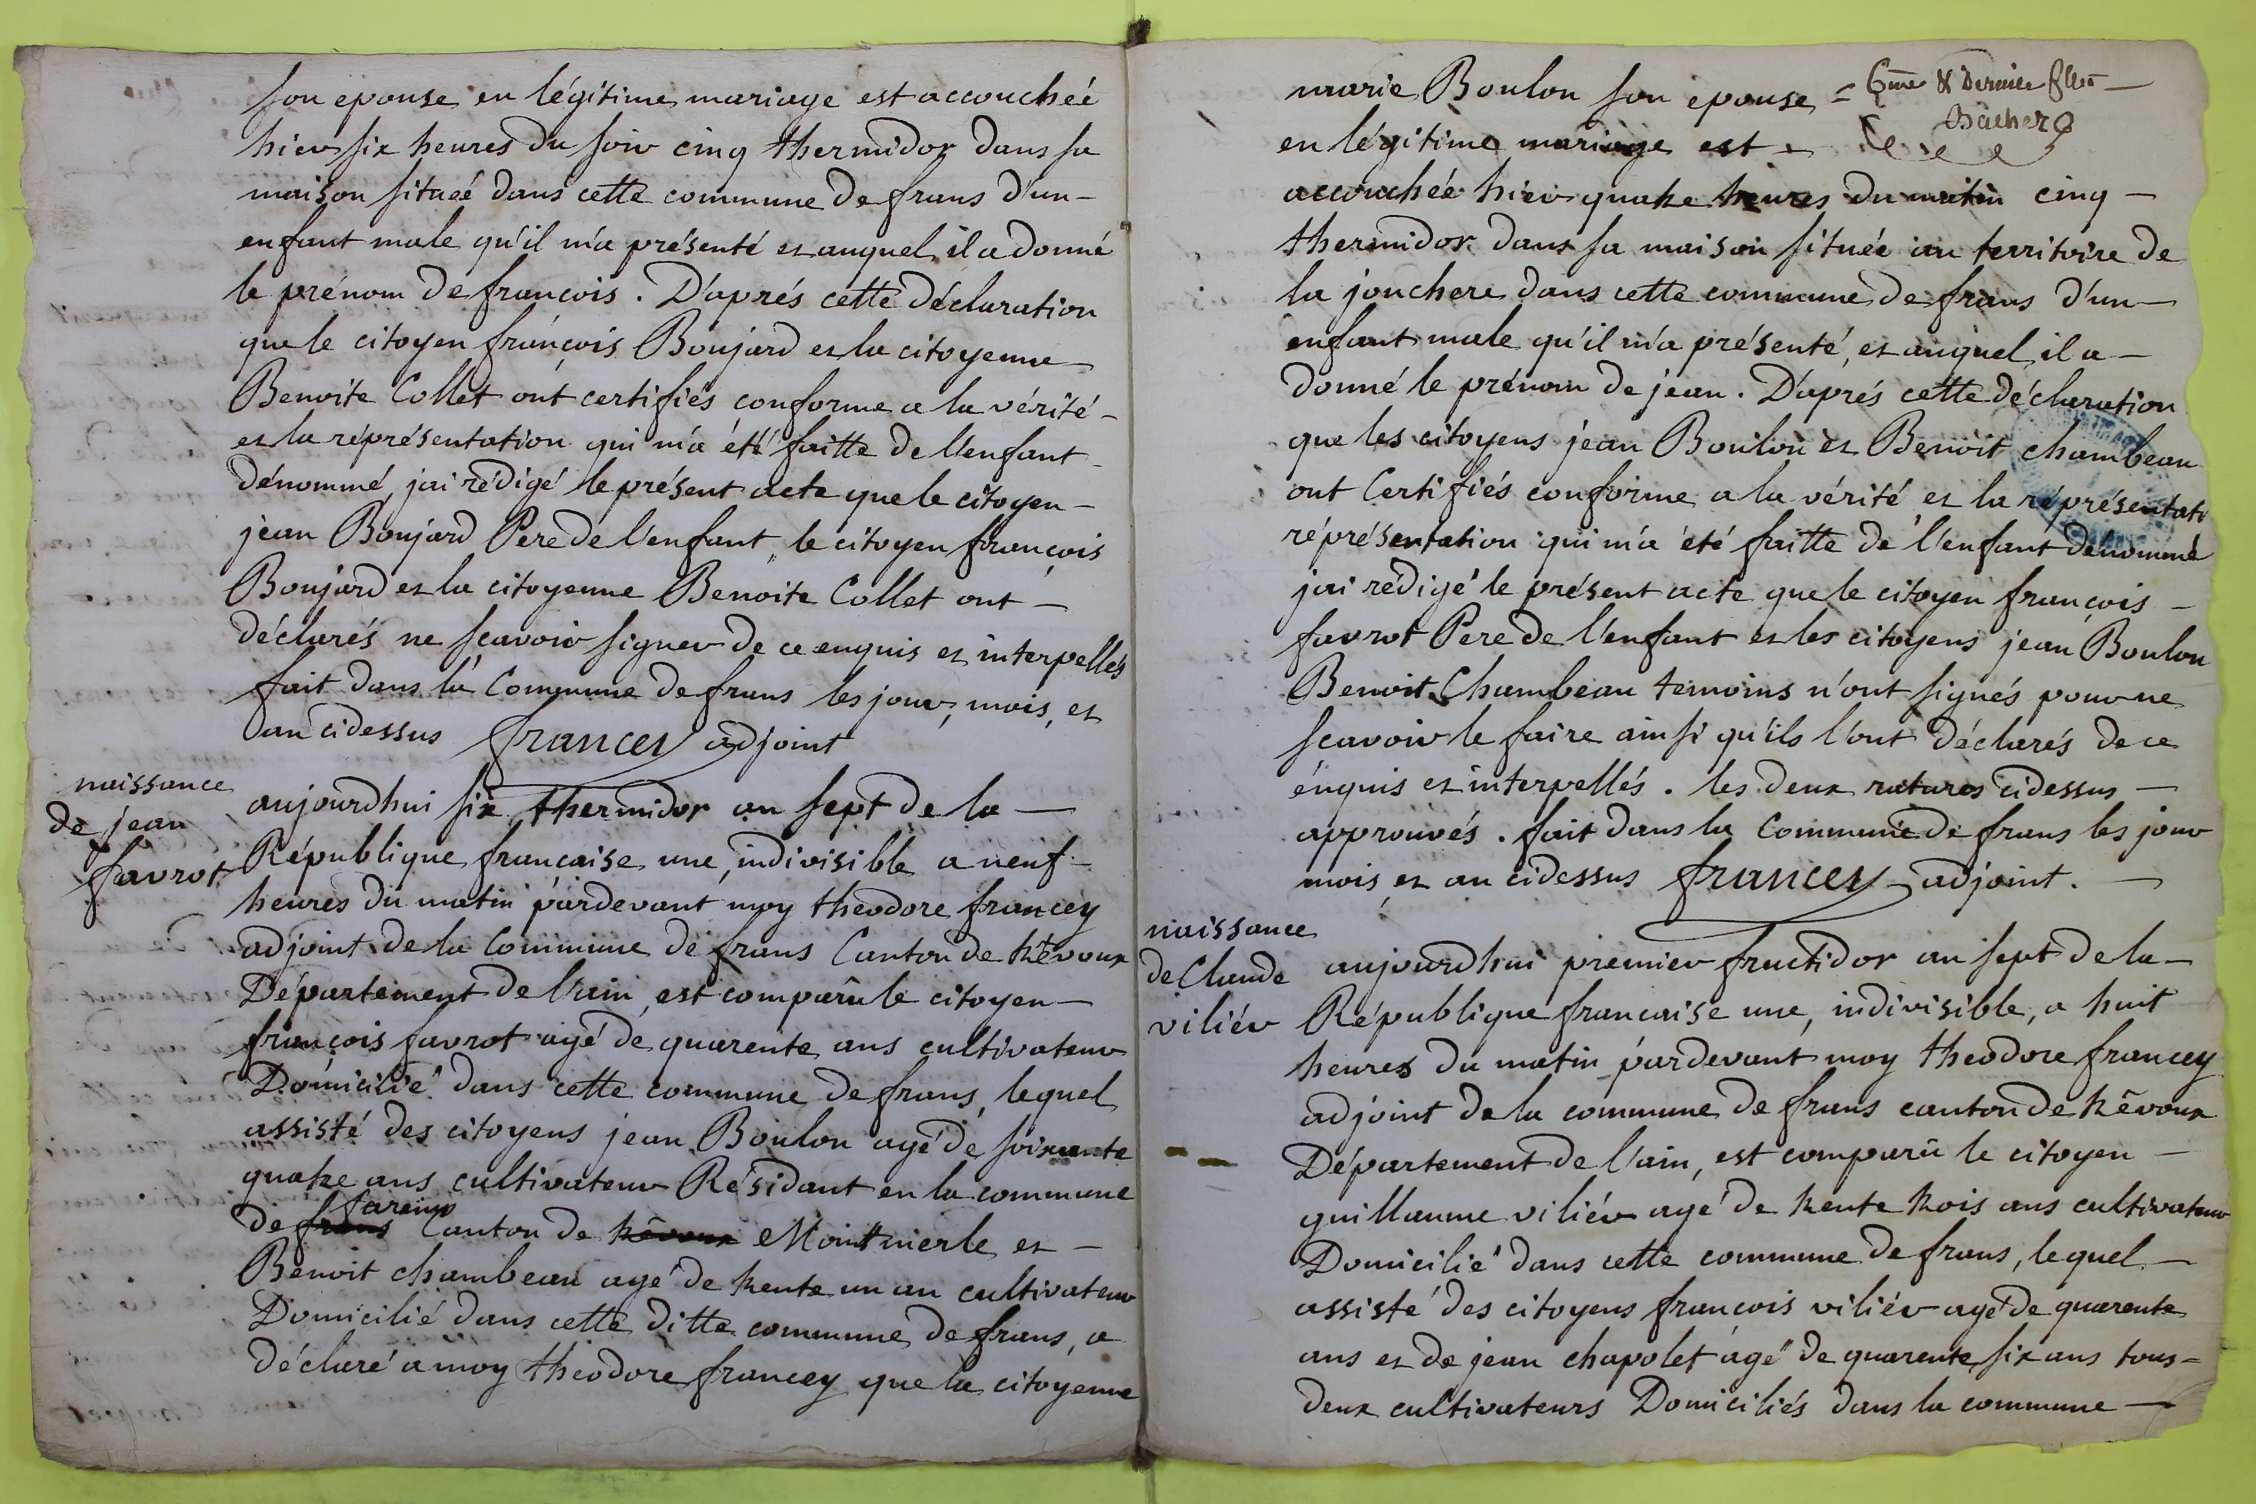 son epouse en légitime mariage est accouchéé
hier six heures du soir cinq thermidor dans sa
maison situéé dans cette commune de frans d'un-
enfant male qu'il m'a présenté et auquel il a donné
le prénom de françois. D'aprés cette déclaration
que le citoyen françois Boujard et la citoyenne
Benoite Collet ont certifiés conforme a la vérité-
et la réprésentation qui m'a été faitte de l'enfant
dénommé, j'ai rédigé le présent acte que le citoyen-
jean Boujard Pere de l'enfant, le citoyen françois
Boujard et la citoyenne Benoite Collet ont-
déclarés ne scavoir signer de ce enquis et interpellés
fait dans la Commune de frans les jour, mois, et
an cidessus francey adjoint
naissance
de jean
favrot
aujourdhui six thermidor an sept de la-
République francaise une, indivisible a neuf-
heures du matin pardevant moy théodore francey
adjoint de la Commune de frans Canton de trévoux
Département de l'ain, est comparû le citoyen-
françois favrot agé de quarente ans cultivateur
Domicilié dans cette commune de frans, lequel
assisté des citoyens jean Boulon agé de soixante
quatre ans cultivateur Résidant en la commune
fareins
de frans Canton de trévoux Montmerle et-
Benoit chambeau agé de trente un an cultivateur
Domicilié dans cette ditte commune de frans, a
déclaré a moy théodore francey que la citoyenne
marie Boulon son epouse = 6me & dernier
Bacher
en légitime mariage est-
accouchéé hier quatre heures du matin cinq-
thermidor dans sa maison située au territoire de
la jonchere dans cette commune de frans d'un-
enfant male qu'il m'a présenté, et auquel il a-
donné le prénom de jean. D'aprés cette déclaration
que les citoyens jean Boulon et Benoit chambeau
ont Certifiés conforme a la vérité et la réprésentati
réprésentation qui m'a été faitte de l'enfant dénommé
j'ai rédigé le présent acte que le citoyen françois-
favrot Pere de l'enfant et les citoyens jean Boulon
Benoit Chambeau temoins n'ont signés pour ne
scavoir le faire ainsi qu'ils l'ont déclarés de ce
énquis et interpellés. les deux ratures cidessus-
approuvés. fait dans la Commune de frans les jour
mois, et an cidessus francey adjoint.-
naissance
de Claude
viliér
aujourdhui premier fructidor an sept de la-
République francaise une, indivisible, a huit
heures du matin pardevant moy théodore francey
adjoint de la commune de frans canton de trévoux
Département de l'ain, est comparû le citoyen-
guillaume viliér agé de trente trois ans cultivateur
Domicilié dans cette commune de frans, lequel-
assisté des citoyens françois viliér agé de quarente
ans et de jean chapolet agé de quarente six ans tous-
deux cultivateurs Domiciliés dans la commune-